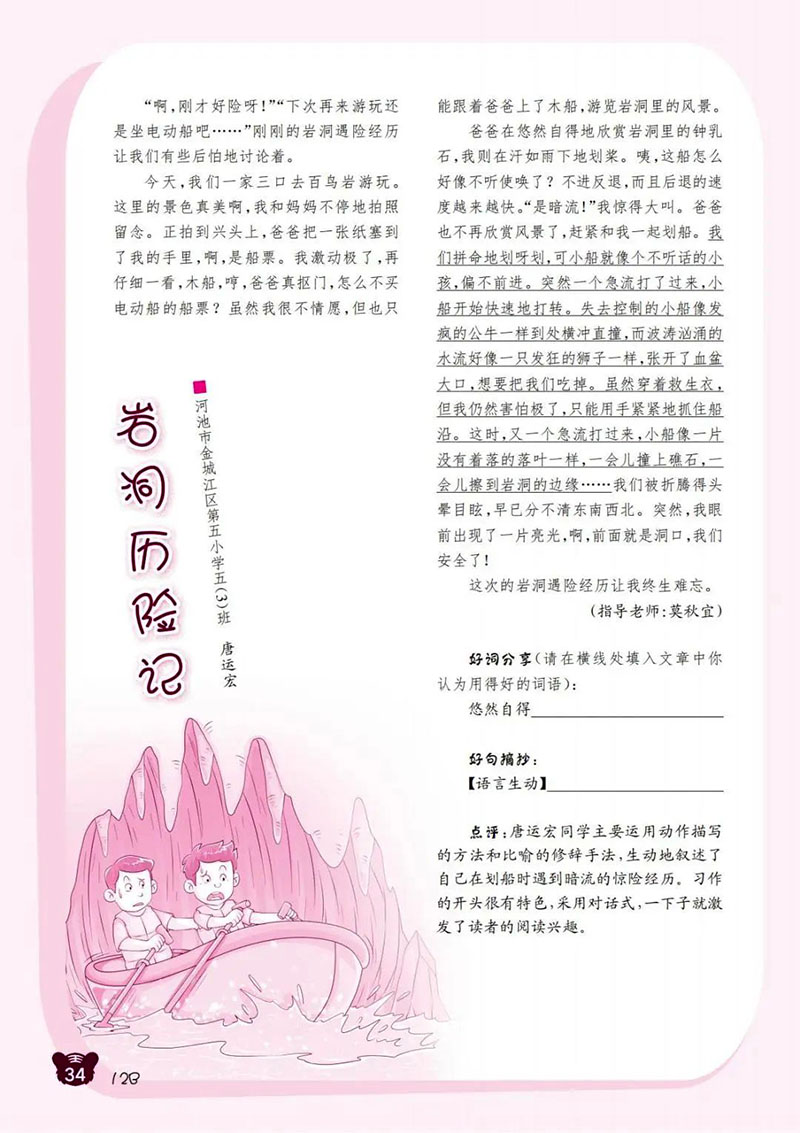 岩洞历险记
■河池市金城江区第五小学五(3)班 唐运宏
“啊,刚才好险呀!”“下次再来游玩还
是坐电动船吧……”刚刚的岩洞遇险经历
让我们有些后怕地讨论着。
今天,我们一家三口去百鸟岩游玩。
这里的景色真美啊,我和妈妈不停地拍照
留念。正拍到兴头上,爸爸把一张纸塞到
了我的手里,啊,是船票。我激动极了,再
仔细一看,木船,哼,爸爸真抠门,怎么不买
电动船的船票?虽然我很不情愿,但也只
能跟着爸爸上了木船,游览岩洞里的风景。
爸爸在悠然自得地欣赏岩洞里的钟乳
石,我则在汗如雨下地划桨。咦,这船怎么
好像不听使唤了?不进反退,而且后退的速
度越来越快。“是暗流!”我惊得大叫。爸爸
也不再欣赏风景了,赶紧和我一起划船。我
们拼命地划呀划,可小船就像个不听话的小
孩,偏不前进。突然一个急流打了过来,小
船开始快速地打转。失去控制的小船像发
疯的公牛一样到处横冲直撞,而波涛汹涌的
水流好像一只发狂的狮子一样,张开了血盆
大口,想要把我们吃掉。虽然穿着救生衣,
但我仍然害怕极了,只能用手紧紧地抓住船
沿。这时,又一个急流打过来,小船像一片
没有着落的落叶一样,一会儿撞上礁石,一
会儿擦到岩洞的边缘……我们被折腾得头
晕目眩,早已分不清东南西北。突然,我眼
前出现了一片亮光,啊,前面就是洞口,我们
安全了!
这次的岩洞遇险经历让我终生难忘。
(指导老师:莫秋宜)
好词分享(请在横线处填入文章中你
认为用得好的词语):
悠然自得
好句摘抄:
【语言生动】
点评:唐运宏同学主要运用动作描写
的方法和比喻的修辞手法,生动地叙述了
自己在划船时遇到暗流的惊险经历。习作
的开头很有特色,采用对话式,一下子就激
发了读者的阅读兴趣。
34 12B